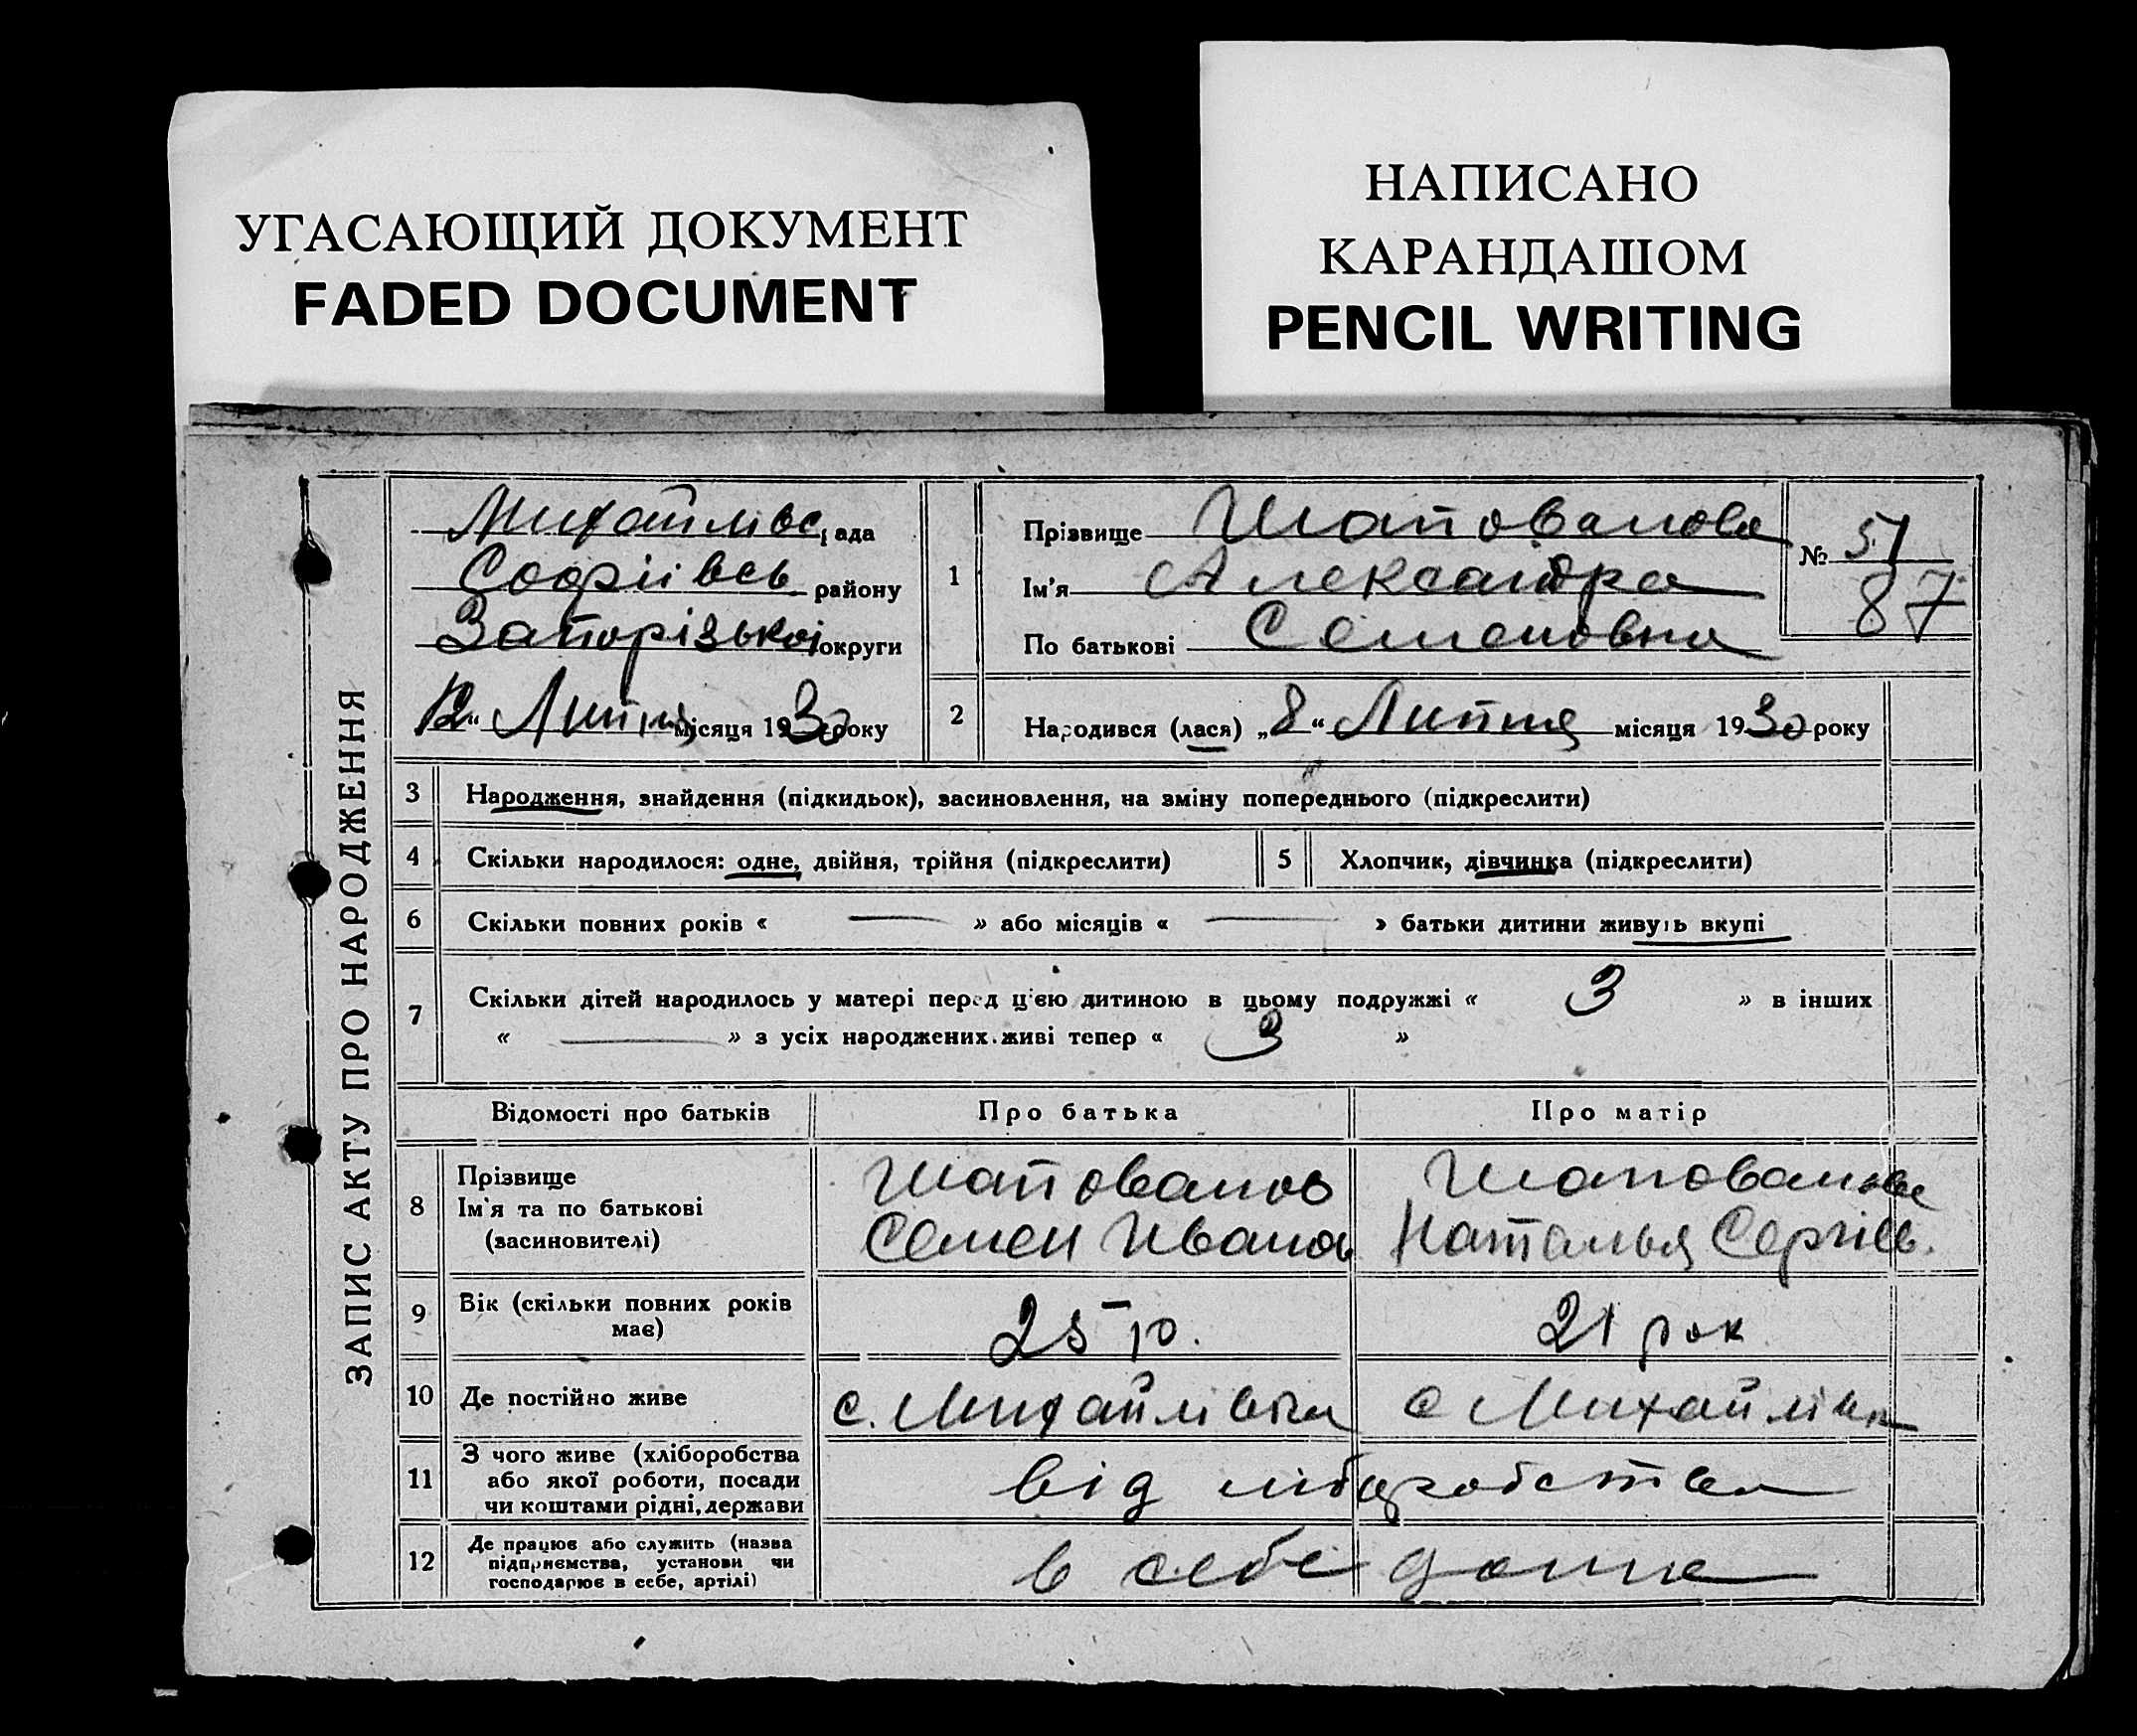 УГАСАЮЩИЙ ДОКУМЕНТ
FADED DOCUMENT
НАПИСАНО
КАРАНДАШОМ
PENCIL WRITING
ЗАПИС АКТУ ПРО НАРОДЖЕННЯ
Михайлівс рада
Софіівсь району
Запорізької округи
12 " Липня місяця 1930 року
1
Прізвище Шаповалова
Ім'я Александра
По батькові Семеновна
№ 51
87
2 Народився (лася) „ 8 “ Липня місяця 1930 року
3 Народження, знайдення (підкидьок), засиновлення, на зміну попереднього (підкреслити)
4 Скільки народилося: одне, двійня, трійня (підкреслити) 5 Хлопчик, дівчинка (підкреслити)
6 Скільки повних років « — » або місяців « — » батьки дитини живуть вкупі
7 Скільки дітей народилось у матері перед цією дитиною в цьому подружжі « 3 » в інших
« — » з усіх народжених живі тепер « 3 »
Відомості про батьків Про батька Про матір
8 Прізвище
Ім'я та по батькові
(засиновителі)
Шаповалов
Семен Иванов
Шаповалова
Наталья Сергіев.
9 Вік (скільки повних років
має)
25 р.
21 рок
10 Де постійно живе с. Михайлівка с Михайлівк
11 З чого живе (хліборобства
або якої роботи, посади
чи коштами рідні, держави
від хліборобства
12 Де працює або служить (назва
підприємства, установи чи
господарює в себе, артілі)
в себе дома